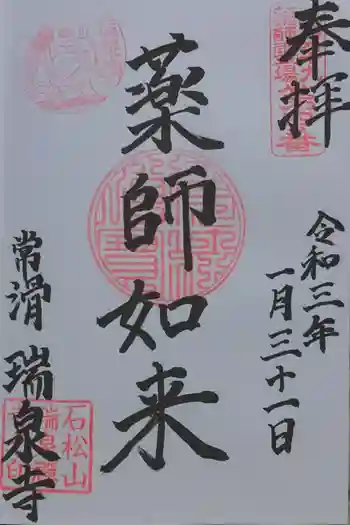 奉拝
令和三年
一月三十一日
薬師如来
常滑 瑞泉寺
石松山